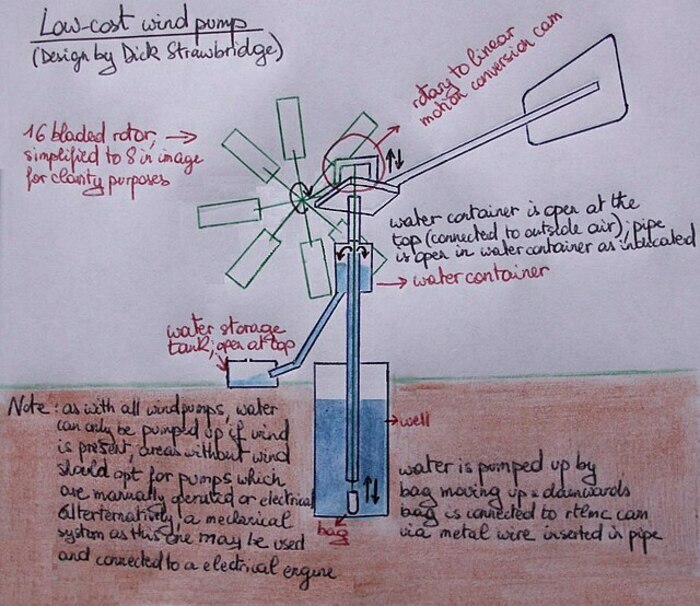 Low-cost wind pump
(Design by Dick Strawbridge)
rotary to linear
motion conversion cam
16 bladed rotor,
simplified to 8 in image
for clarity purposes
water container is open at the
top (connected to outside air); pipe
is open in water container as indicated
water container
water storage
tank; open at top
Note: as with all windpumps, water
can only be pumped up if wind
is present, areas without wind
should opt for pumps which
are manually operated or electrical
alterternatively, a mechanical
system as this one may be used
and connected to a electrical engine
well
water is pumped up by
bag moving up & downwards
bag is connected to rtlmc cam
via metal wire inserted in pipe
bag